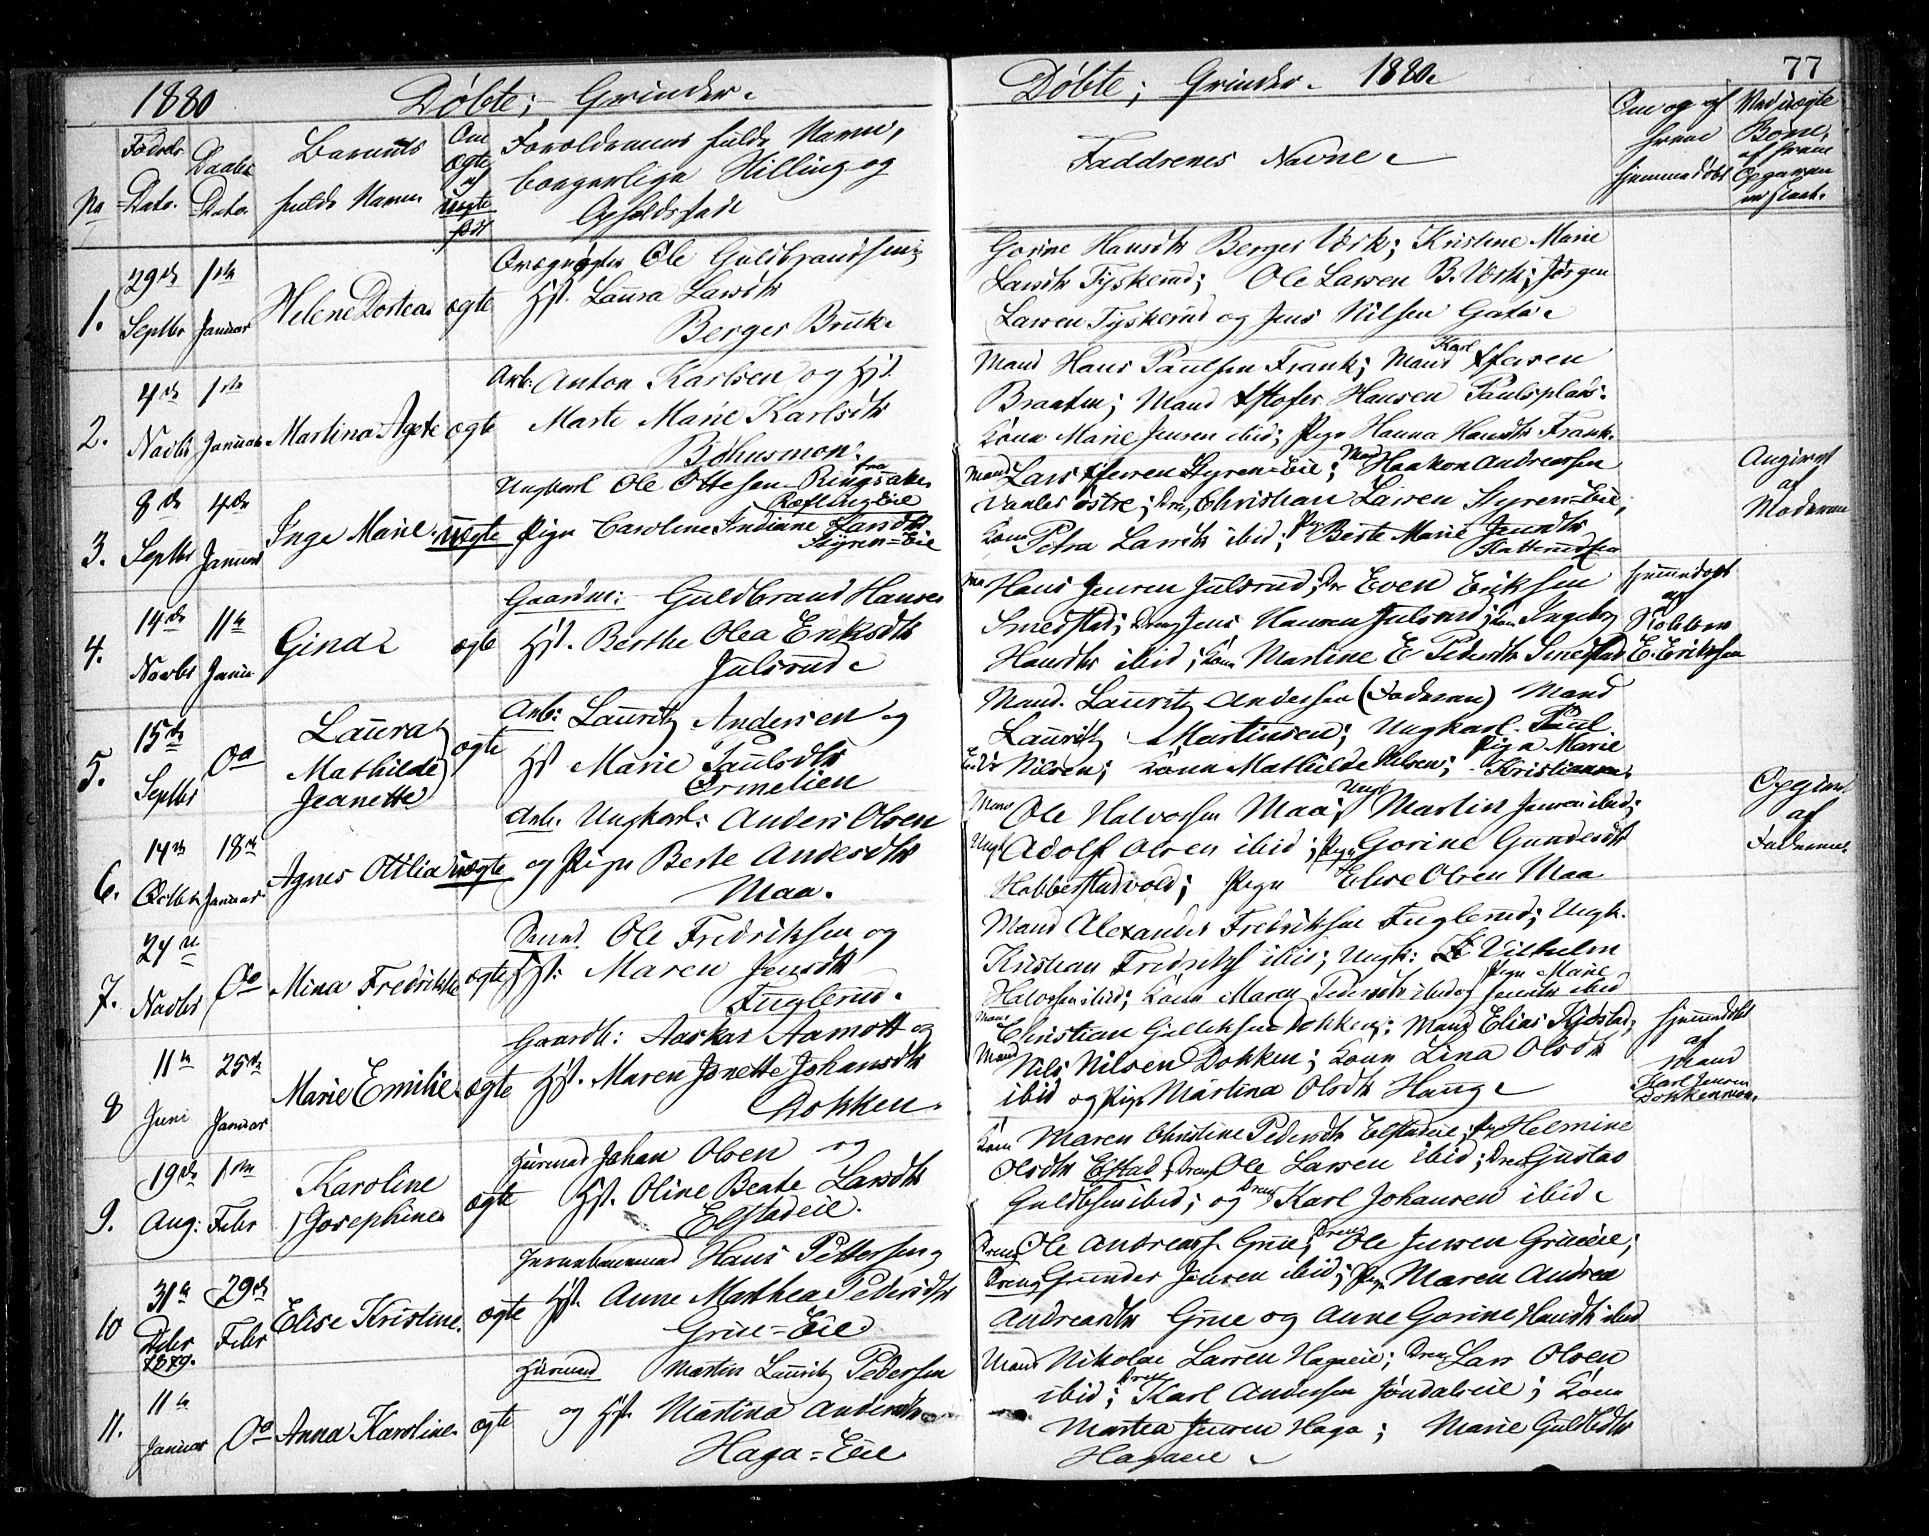 1880 Døbte; Qvinder.
No
Fødsels Dato.
Daabs Dato.
Barnets fulde Navn
Om ægte el uægte født
Forældrenes fulde Navne, borgerlige Stilling og Opholdssted
1.
29de Septbr
1ste Januar
Helene Dortea.
ægte
Ole Guldbrandsen;
Hst. Laura Larsdtr
Berger Bruk.
2.
4de Novbr
1ste Januar
Martina Agete
ægte
Arb: Anton Karlsen og Hst.
Marte Marie Karlsdtr
3.
8de Septbr
4de Januar
Inge Marie.
uægte
Ungkarl Ole Ottesen Ringsaker
Pige Caroline Indiane Larsdtr
Styren=Eie
4.
14de Novbr
11te Janu
Gina
ægte
Gaardm: Guldbrand Hansen
Hst. Berthe Olea Eriksdtr
Julsrud.
5.
15de Septbr
Do
Laura
Mathilde
Jeanette
ægte
Arb: Lauritz Andersen og
Hst Marie Paulsdtr
Ormelien
6.
14de Octbr
18de Januar.
Agnes Otilia
uægte
Arb. Ungkarl: Anders Olsen
og Pige Berte Andersdtr
Maa.
7.
24de Novbr
Do
Mina Fredrikke
ægte
Ole Fredriksen og
Hst: Maren Jensdtr
Fuglerud.
8
11te Juni
25de Januar
Marie Emilie.
ægte
Gaardb: Aaskar Aamott og
Hst. Maren Jonette Johansdtr
Dokken.
9.
19de Aug:
1ste Febr
Karoline
Josephine
ægte
Husmand Johan Olsen og
Hst. Oline Beate Larsdtr
Elstadeie.
10
31te Debr 1879.
29de Febr
Elise Kristine.
ægte
Jernbanemand Hans Pettersen og
Hst. Anne Marthea Pedersdtr
Grue=Eie
11.
11te Januar
Do
Anna Karoline.
ægte
Husmand Martin Lauritz Pedersen
og Hst. Martina Andersdtr
Haga=Eie
Døbte; Qvinder. 1880.
77
Faddrenes Navne.
Om og af hvem hjemmedøbt
Ved uægte Børn, af hvem Opgaven er skeet.
Gorine Hansdtr Berger Værk; Kristine Marie
Larsdtr Tyskerud; Ole Larsen B. Værk; Jørgen
Larsen Tyskerud og Jens Nilsen
Mand Hans Paulsen Frank; Mand Karl Ifversen
Braaten; Mand Hansen Paulsplads.
Kone Marie Jensen ibid; Pige Hanna Hansdtr Frank.
Mand Lars Ifversen Styren=Eie; Mand Haakon Andreassen
østre; Christian Larsen Styren=Eie;
Kone Petra Larsdtr ibid; Pige Berte Marie Jensdtr
Angivet af Moderen
Hans Jensen Julsrud; Even Eriksen
Smedstad; Dreng Jens Hansen Julsrud; Ingeborg
Hansdtr ibid; Kone Martine E Pedersdtr Smedstad
Hjemmedøbt af E. Eriksen
Mand. Lauritz Andersen (Faderen) Mand
Lauritz Martinsen; Ungkarl. Paul
Nilsen; Kone Mathilde Nilsen; Pige Marie
Kristiansen.
Mand Ole Halvorsen Maa; Ungk Martin Jensen ibid;
Ungk Adolf Olsen ibid; Pige Gorine Gundersdtr
Habberstadvold; Pige Elise Olsen Maa
Opgivet af Faderen
Mand Alexander Fredriksen Fuglerud; Ungk.
Kristian Fredriks ibid; Ungk: Vilhelm
Halvorsen ibid; Kone Maren Pedersdtr ibid og Pige Marie Jensdtr ibid
Mand Christian Gulliksen Dokken; Mand Elias Kjøstad;
Mand Nils Nilsen Dokken; Kone Lina Olsdtr
ibid og Pige Martina Olsdtr Haug.
Hjemmedøbt af Mand Karl Jensen
Kone Maren Christine Pedersdtr Elstadeie; Pige Helmine
Olsdtr Elstad; Dreng Ole Larsen ibid; Dreng Gustav
Guldbsen ibid; og Dreng Karl Johansen ibid.
Dreng Ole Andreass. Grue; Dreng Ole Jensen Grueeie;
Dreng Gunder Jensen ibid; Pige Maren Andrea
Andreasdtr Grue og Anne Gorine Hansdtr ibid
Mand Nikolae Larsen Hagaeie; Dreng Lars Olsen
ibid; Dreng Karl Andersen Jøndalseie; Kone
Martea Jensen Haga; Marie Guldbdtr
Hagaeie.